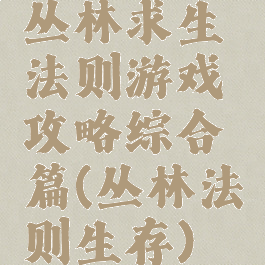 丛林求生
法则游戏
攻略综合
篇(丛林法
则生存)